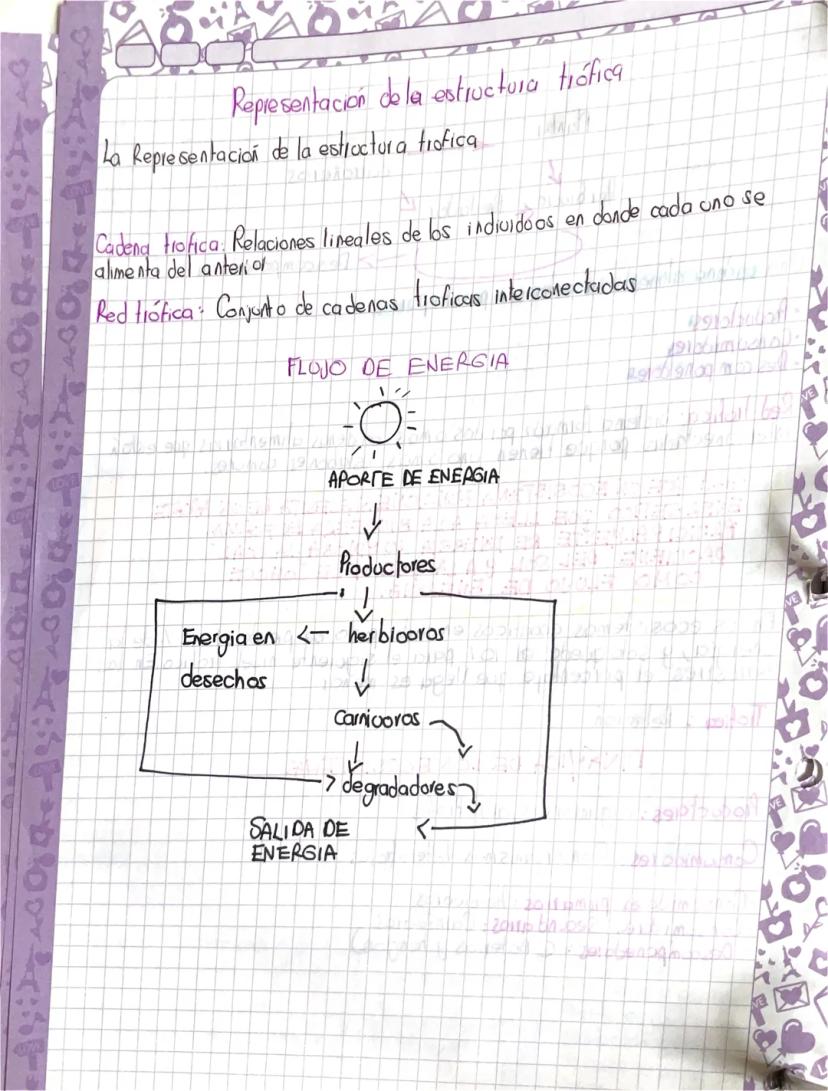 Representación de la estructura trófica
La Representación de la estructura trofica
Cadena trofica: Relaciones lineales de los individuos en donde cada uno se
alimenta del anterior
Red trófica: Conjunto de cadenas troficas interconectadas
FLUJO DE ENERGIA
APORTE DE ENERGIA
Productores
Energia en <— herbivoros
desechos
Carnivoros
degradadores
SALIDA DE
ENERGIA